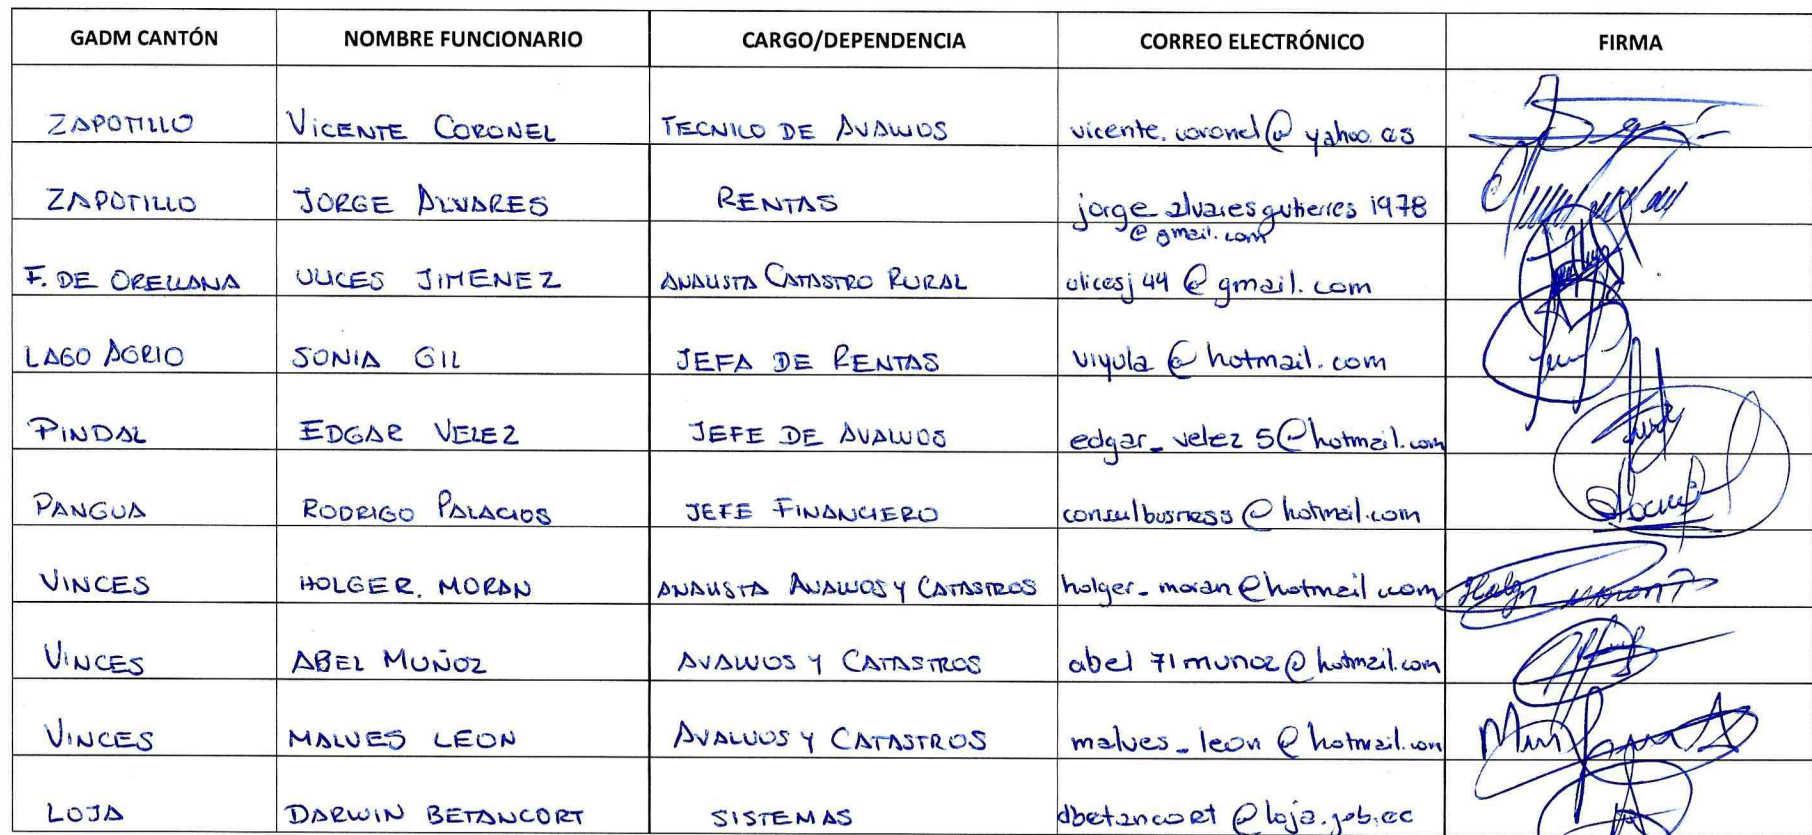 GADM CANTÓN NOMBRE FUNCIONARIO CARGO/DEPENDENCIA CORREO ELECTRÓNICO FIRMA
ZAPOTILLO VICENTE CORONEL TECNICO DE AVALUOS vicente.coronel@yahoo.es
ZAPOTILLO JORGE ALVARES RENTAS jorge_alvaresgutierres1978
@gmail.com
F. DE ORELLANA ULICES JIMENEZ ANALISTA CATASTRO RURAL ulicesj44@gmail.com
LAGO AGRIO SONIA GIL JEFA DE RENTAS viyula@hotmail.com
PINDAL EDGAR VELEZ JEFE DE AVALUOS edgar_velez5@hotmail.com
PANGUA RODRIGO PALACIOS JEFE FINANCIERO consulbusness@hotmail.com
VINCES HOLGER. MORAN ANALISTA AVALUOS Y CATASTROS holger_moran@hotmail.com
VINCES ABEL MUÑOZ AVALUOS Y CATASTROS abel71munoz@hotmail.com
VINCES MALVES LEON AVALUOS Y CATASTROS malves_leon@hotmail.com
LOJA DARWIN BETANCORT SISTEMAS dbetancort@loja.gob.ec